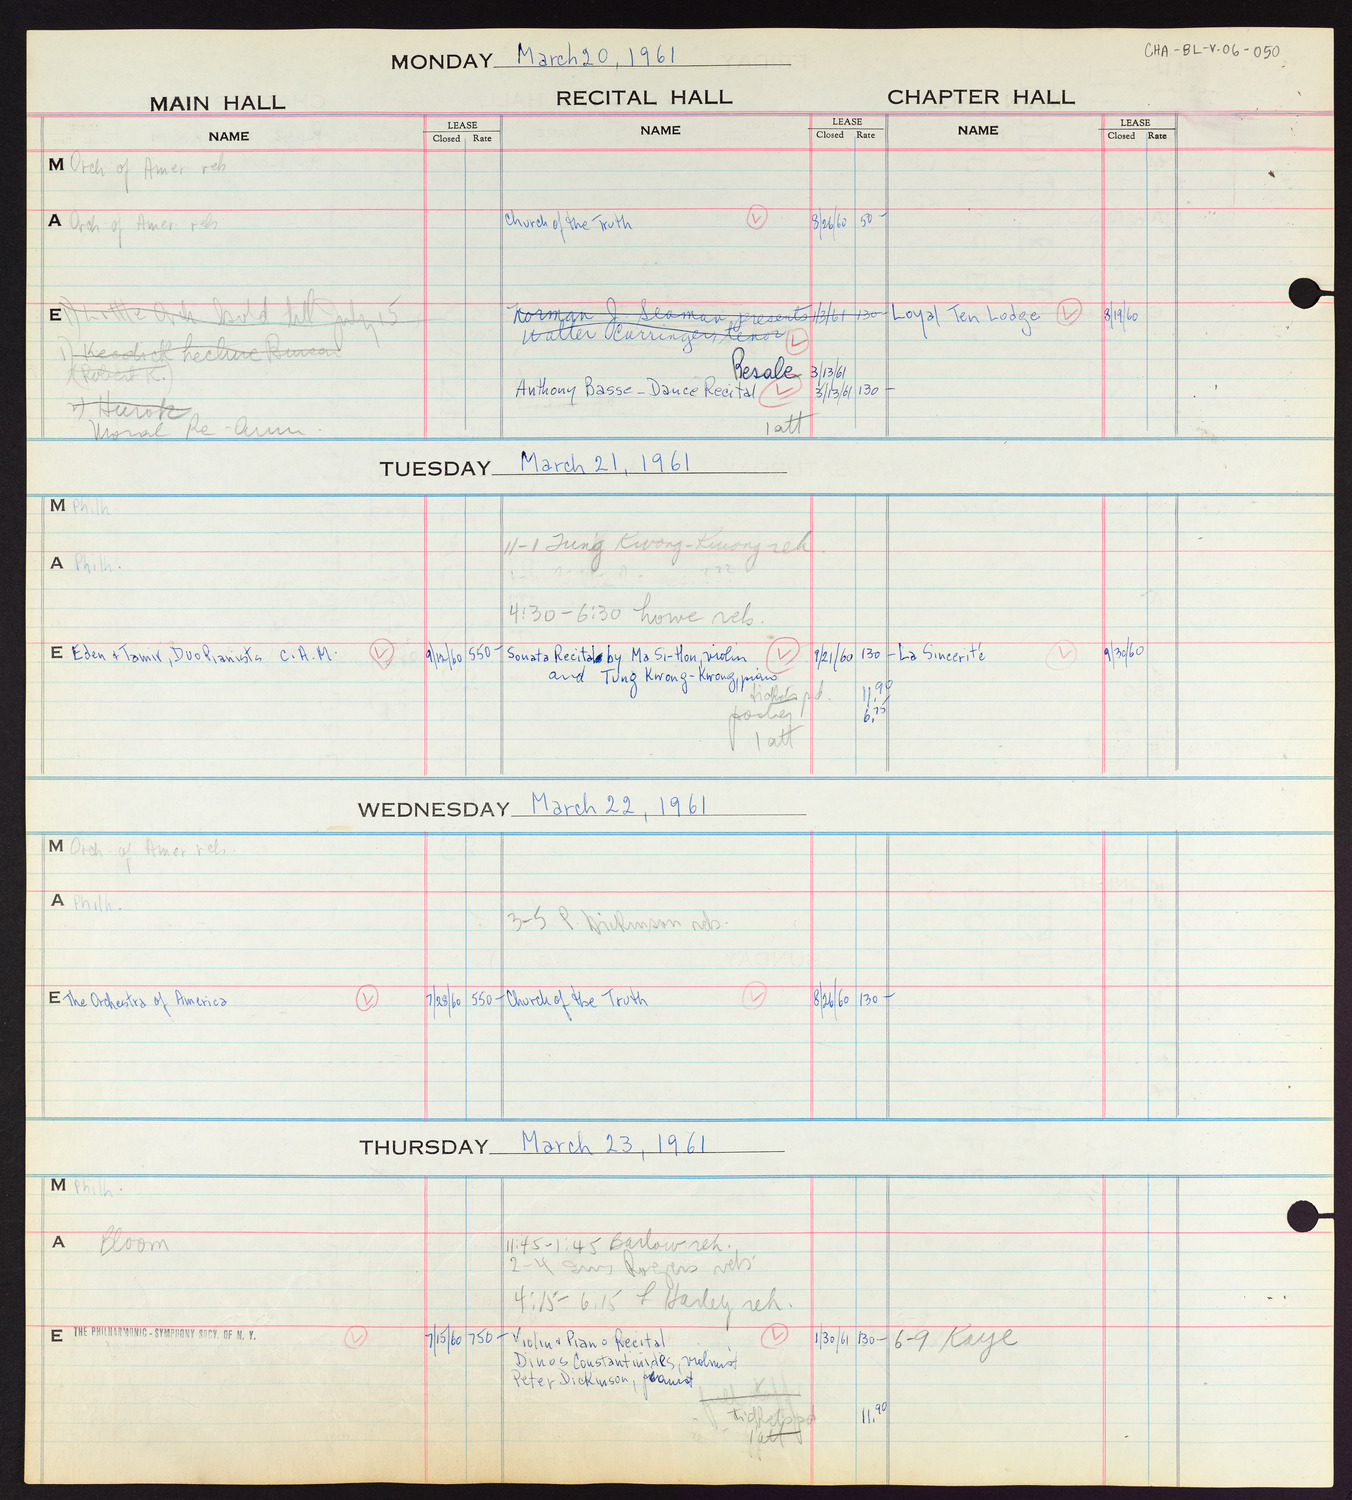 CHA-BL-V.06-050
MONDAY March 20, 1961
MAIN HALL RECITAL HALL CHAPTER HALL
NAME LEASE Closed Rate NAME LEASE Closed Rate NAME LEASE Closed Rate
M Orch of Amer reh
A Orch of Amer. reh Church of the Truth 8/26/60 50-
E 1) Little Orch hold till July 15 Norman J. Seaman presents 1/3/61 130- Loyal Ten Lodge 8/19/60
Walter Carringer, tenor
1) Keedick Lecture Bureau
(Robert K.) Resale 3/13/61
Anthony Basse - Dance Recital 3/13/61 130-
2) Hurok
Moral Re-Arm. 1 att
TUESDAY March 21, 1961
M Philh.
11-1 Tung Kwong-Kwong reh
A Philh.
4:30-6:30 Howe reh.
E Eden + Tamir, Duo Pianists C.A.M. 9/12/60 550- Sonata Recital by Ma Si-Hon, violin 9/21/60 130- La Sincerité 9/30/60
and Tung Kwong-Kwong, piano
tickets pd. 11.90
poster 6.75
1 att
WEDNESDAY March 22, 1961
M Orch of Amer reh.
A Philh.
3-5 P. Dickinson reh.
E The Orchestra of America 7/28/60 550- Church of the Truth 8/26/60 130-
THURSDAY March 23, 1961
M Philh.
A Bloom 11:45-1:45 Barlow reh.
2-4 Rogers reh
4:15-6:15 Harley reh.
E THE PHILHARMONIC-SYMPHONY SOCY. OF N. Y. 7/15/60 750- Violin + Piano Recital 1/30/61 130- 6-9 Kaye
Dinos Constantinides, violinist
Peter Dickinson, pianist
tickets pd 11.90
1 att